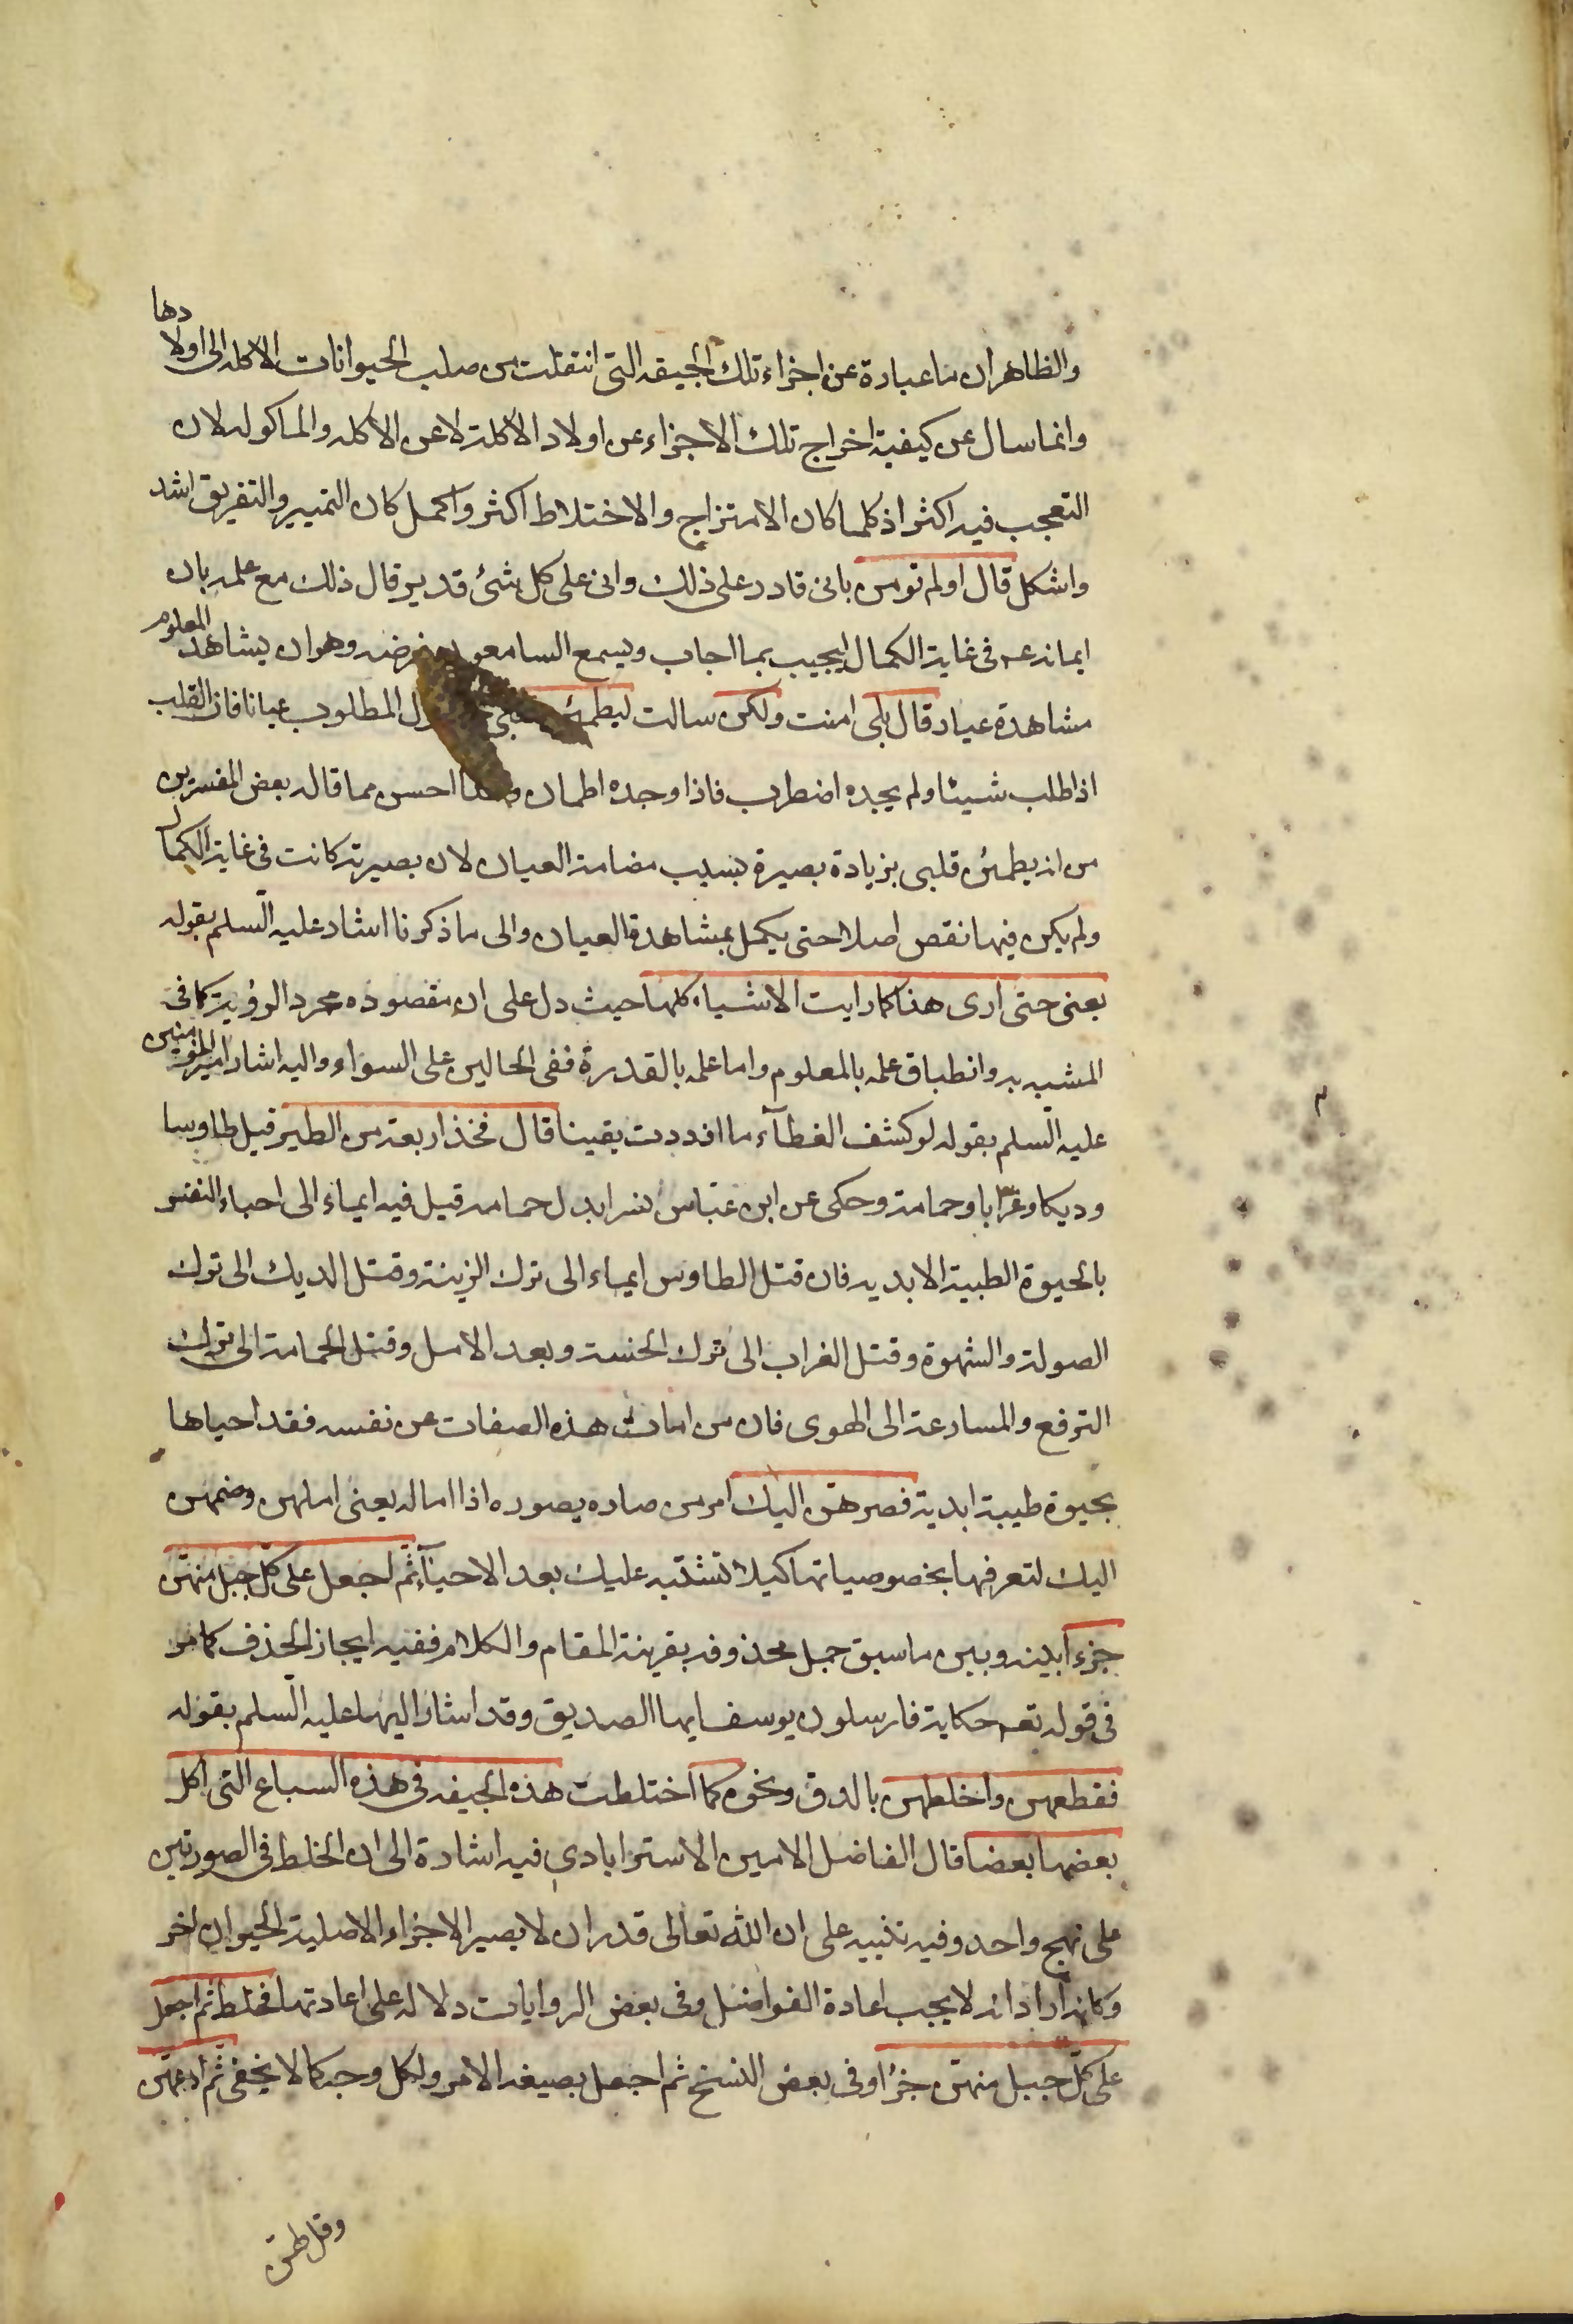 والظاهر ان ما عبارة عن اجزاء تلك الجيفه التي انتقلت من صلب الحيوانات الاكله الى اولادها
وانما سال عن كيفية اخراج تلك الاجزاء عن اولاد الآكلة لا عن الاكله والماكوله لان
التعجب فيه اكثر اذ كلما كان الامتزاج والاختلاط اكثر واكمل كان التمييز والتفريق اشد
واشكل قال اولم تومن بانى قادر على ذلك وانى على كل شئ قدير قال ذلك مع علمه بان
ايمانه عـ فى غاية الكمال ليجيب بما اجاب ويسمع السامعو غرضه وهو ان يشاهد المعلوم
مشاهدة عيان قال بلى امنت ولكن سالت ليطمئن المطلوب عيانا فان القلب
اذا طلب شيئا ولم يجده اضطرب فاذا وجده اطمان احسن مما قاله بعض المفسرين
من انه يطمئن قلبى بزيادة بصيرة بسبب مضامة العيان لان بصيرته كانت فى غاية الكمال
ولم يكن فيها نقص اصلا حتى يكمل بمشاهدة العيان والى ما ذكرنا اشار عليه السلم بقوله
يعنى حتى ارى هذا كما رايت الاشياء كلها حيث دل على ان مقصوده مجرد الرؤية كما فى
المشبه به وانطباق علمه بالمعلوم واما علمه بالقدرة ففى الحالين على السواء واليه اشار امير المؤمنين
عليه السلم بقوله لو كشف الغطآء ما ازددت يقينا قال فخذ اربعة من الطير قيل طاوسا
وديكا وغرابا وحمامة وحكى عن ابن عباس نسرا بدل حمامه قيل فيه ايماء الى احياء النفس
بالحيوة الطيبة الابديه فان قتل الطاوس ايماء الى ترك الزينة وقتل الديك الى ترك
الصولة والشهوة وقتل الغراب الى ترك الخسة وبعد الامل وقتل الحمامة الى ترك
الترفع والمسارعة الى الهوى فان من امات هذه الصفات عن نفسه فقد احياها
بحيوة طيبة ابدية فصرهن اليك امر من صاره يصوره اذا اماله يعنى املهن وضمهن
اليك لتعرفها بخصوصياتها كيلا تشتبه عليك بعد الاحيآء ثم اجعل على كل جبل منهن
جزءا بينه وبين ما سبق جمل محذوفه بقرينة المقام والكلام ففيه ايجاز الحذف كما مر
فى قوله تعـ حكاية فارسلون يوسف ايها الصديق وقد اشار اليها عليه السلم بقوله
فقطعهن واخلطهن بالدق ونحوه كما اختلطت هذه الجيفه فى هذه السباع التى اكل
بعضها بعضا قال الفاضل الامين الاسترابادى فيه اشارة الى ان الخلط فى الصورتين
على نهج واحد وفيه تنبيه على ان الله تعالى قدر ان لا يصير الاجزاء الاصلية لحيوان اخر
وكانه اراد انه لا يجب اعادة الفواضل وفى بعض الروايات دلاله على اعادتها فخلط ثم اجعل
على كل جبل منهن جزءا وفى بعض النسخ ثم اجعل بصيغه الامر ولكل وجه كما لا يخفى ثم ادعهن